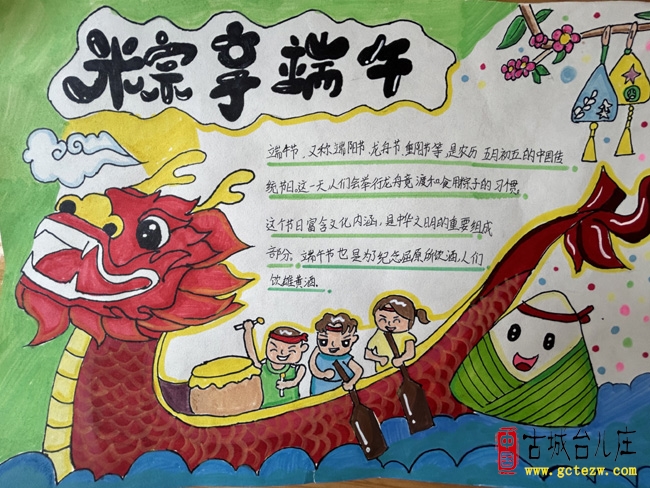 米宗享端午
端午节，又称端阳节、龙舟节、重阳节等，是农历五月初五的中国传
统节日。这一天人们会举行龙舟竞渡和食用粽子的习惯
这个节日富含文化内涵，是中华文明的重要组成
部分。端午节也是为了纪念屈原所饮酒人们
饮雄黄酒。
中国
古城台儿庄
www.gctezw.com